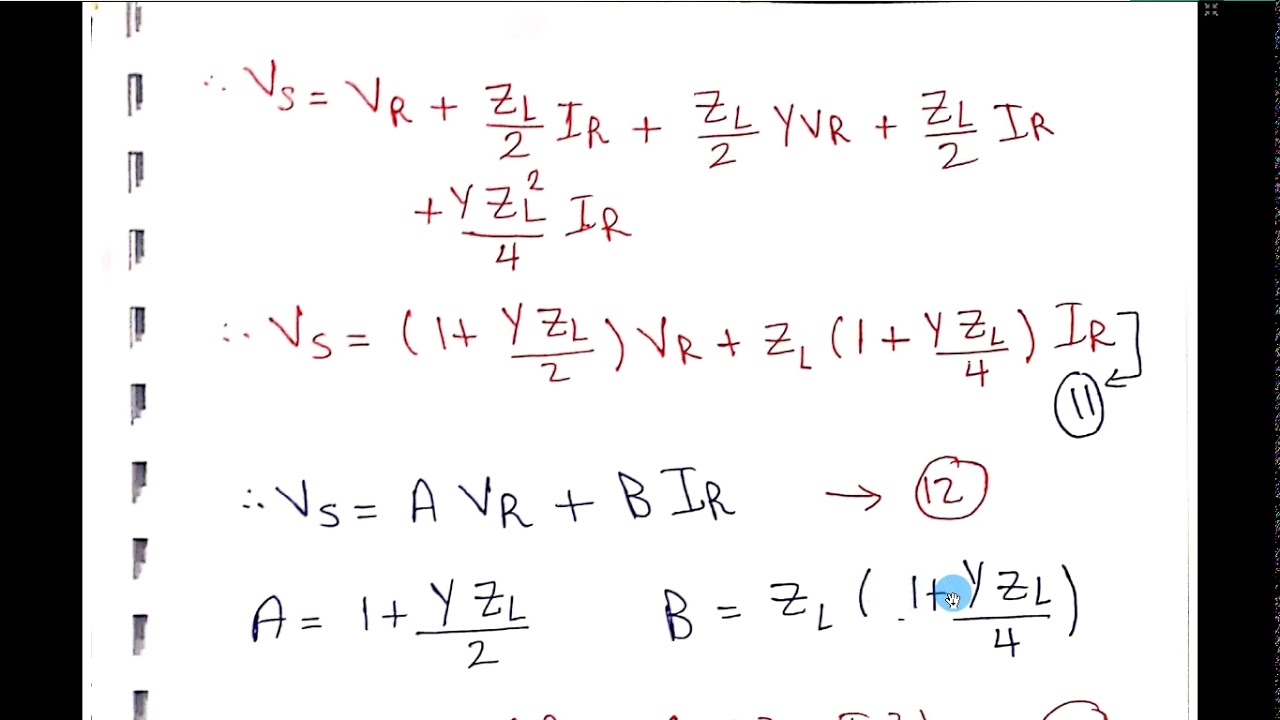 ∴ VS = VR + ZL/2 IR + ZL/2 YVR + ZL/2 IR
+ YZL²/4 IR
∴ VS = (1 + YZL/2) VR + ZL (1 + YZL/4) IR
11
∴ VS = A VR + B IR → 12
A = 1 + YZL/2 B = ZL (1 + YZL/4)